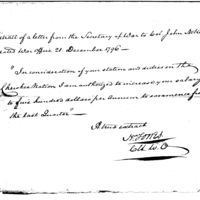 Extract of a letter from the Secretary of War to Col. John
dated War office 21 December 1796 —
"In consideration of your station and duties in the
Cherokee Nation I am authorized to increase your salary
to five hundred dollars per annum to commence from
the last Quarter" —
A true extract